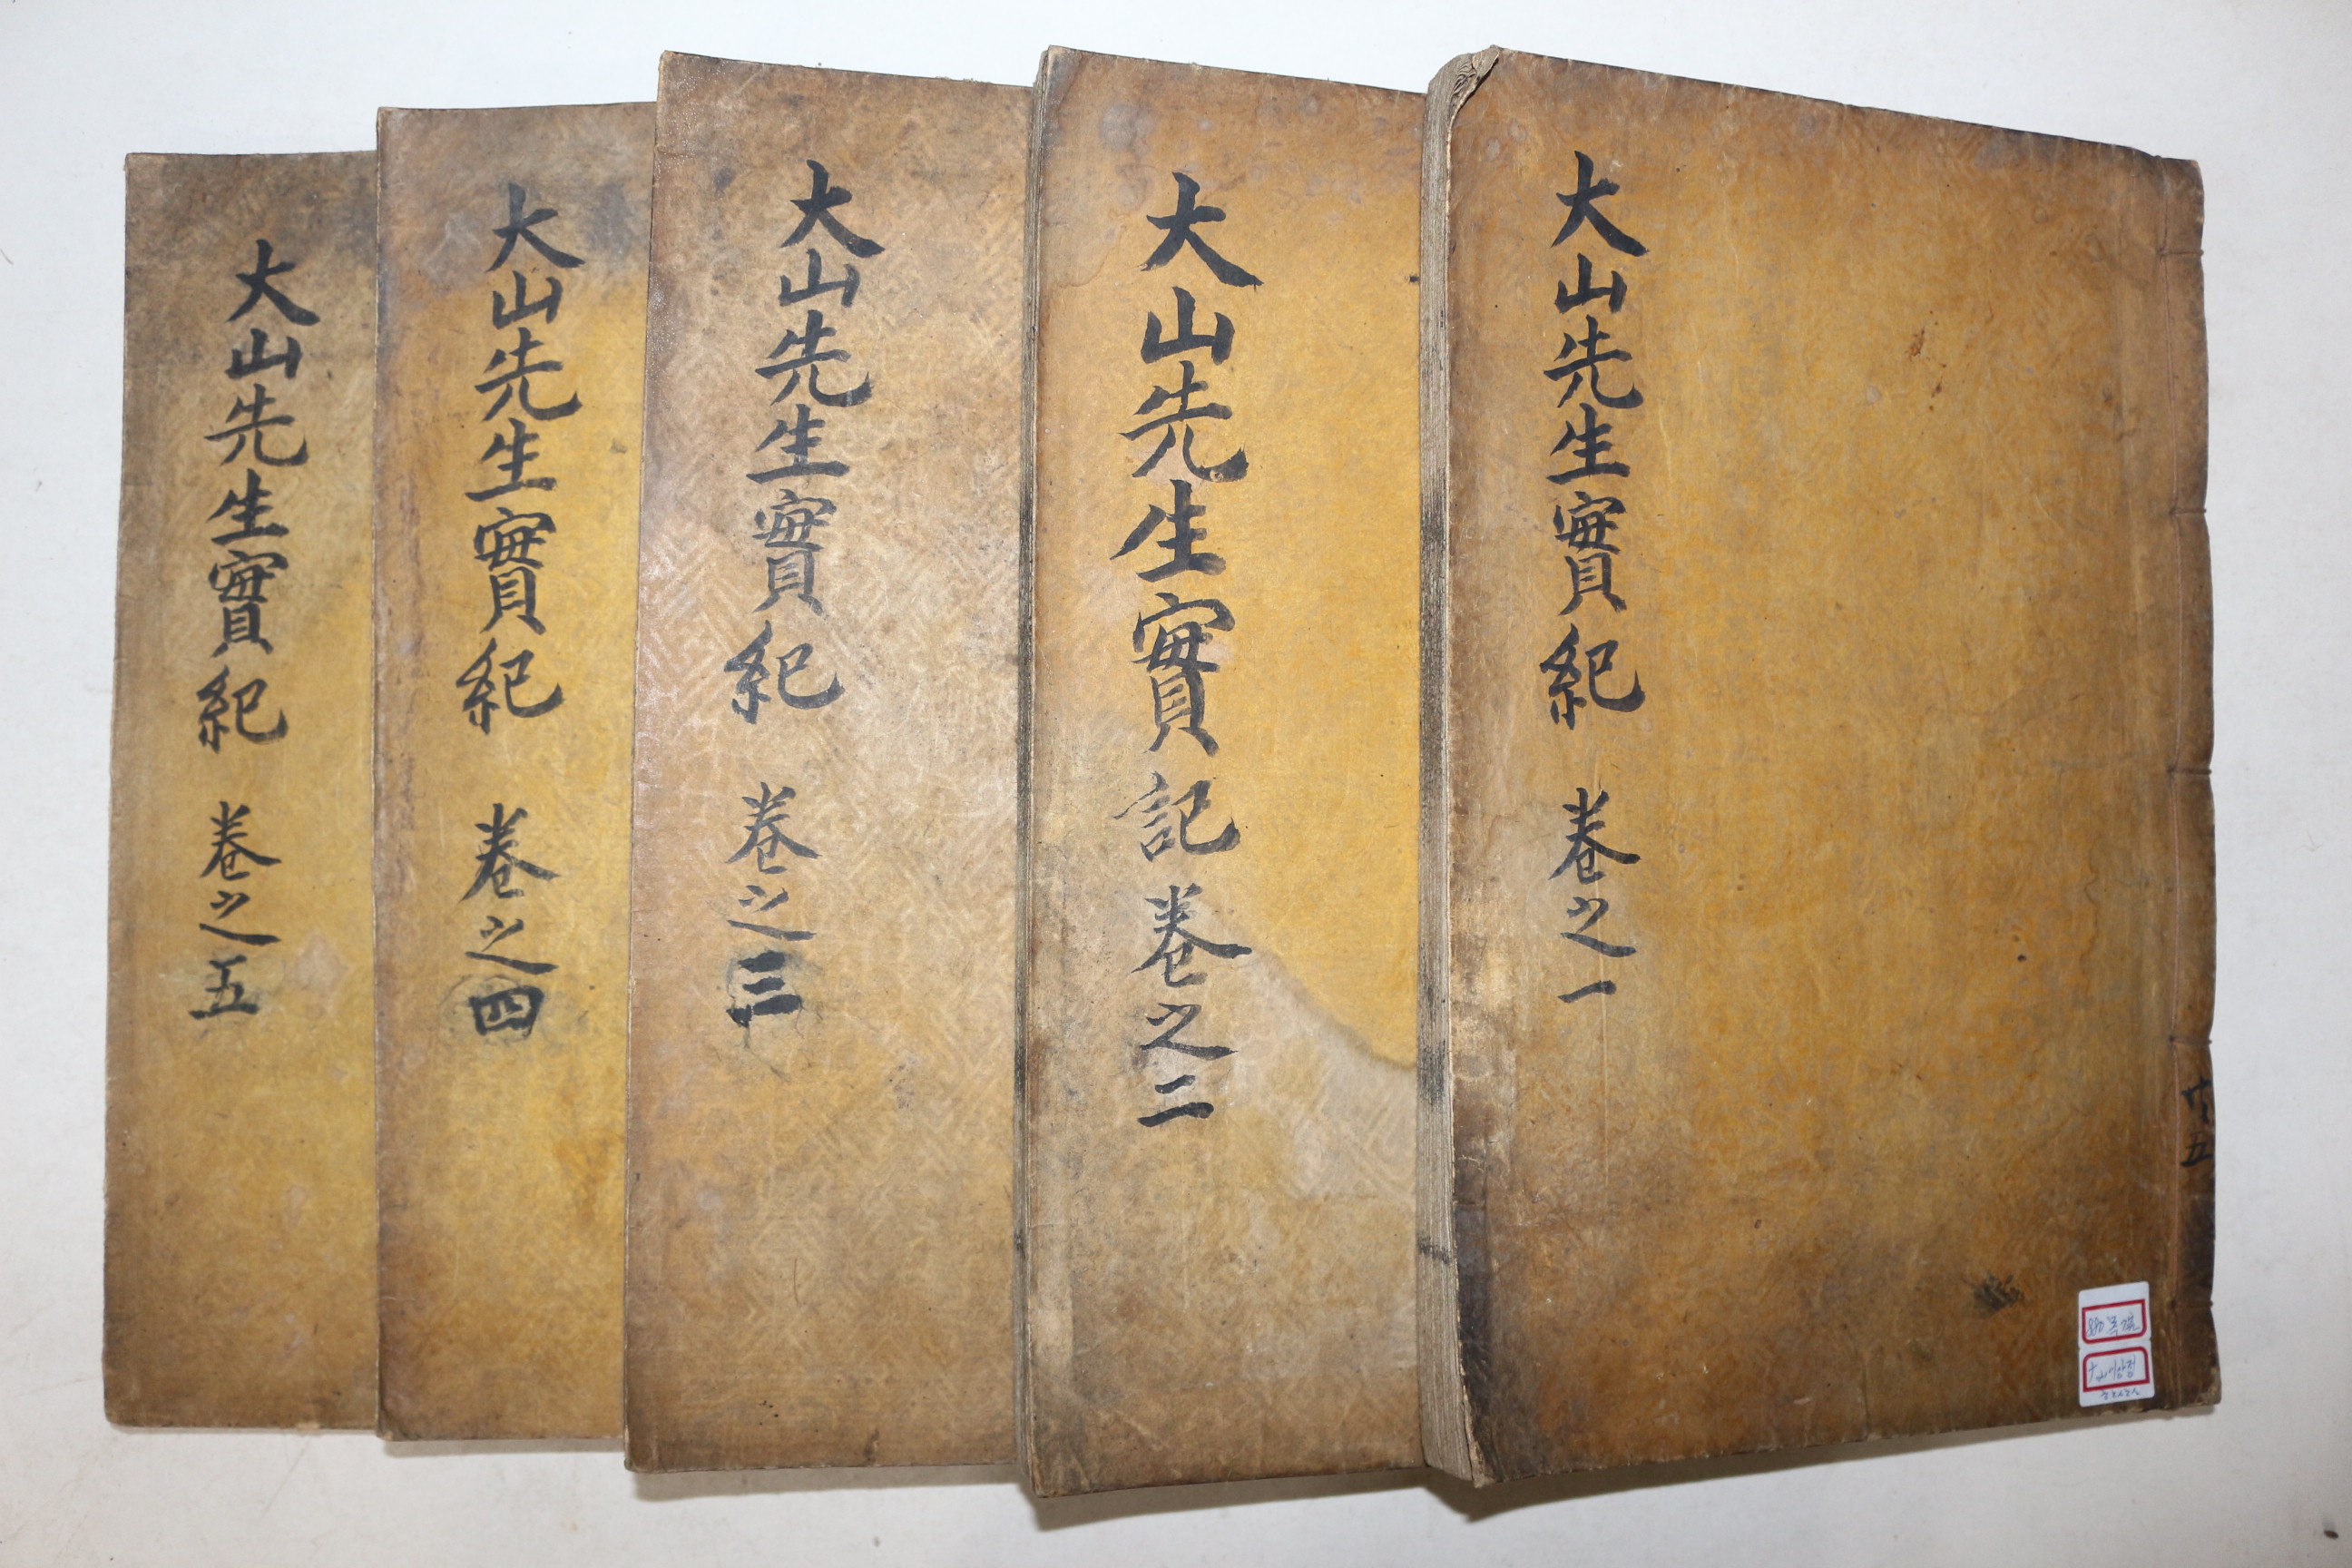 大山先生實紀 卷之一
大山先生實記 卷之二
大山先生實紀 卷之三
大山先生實紀 卷之四
大山先生實紀 卷之五
共五